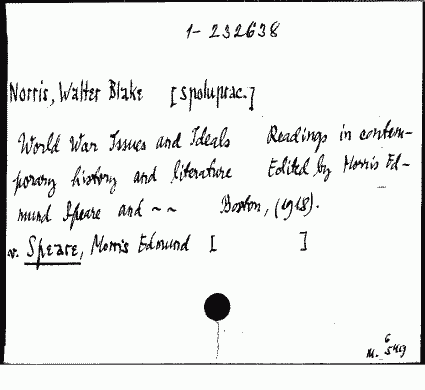 1-232638
Norris, Walter Blake [spoluprac.]
World War Issues and Ideals Readings in contem-
porary history and literature Edited by Morris Ed-
mund Speare and ~ ~ Boston, (1918).
v. Speare, Morris Edmund [ ]
M. 6